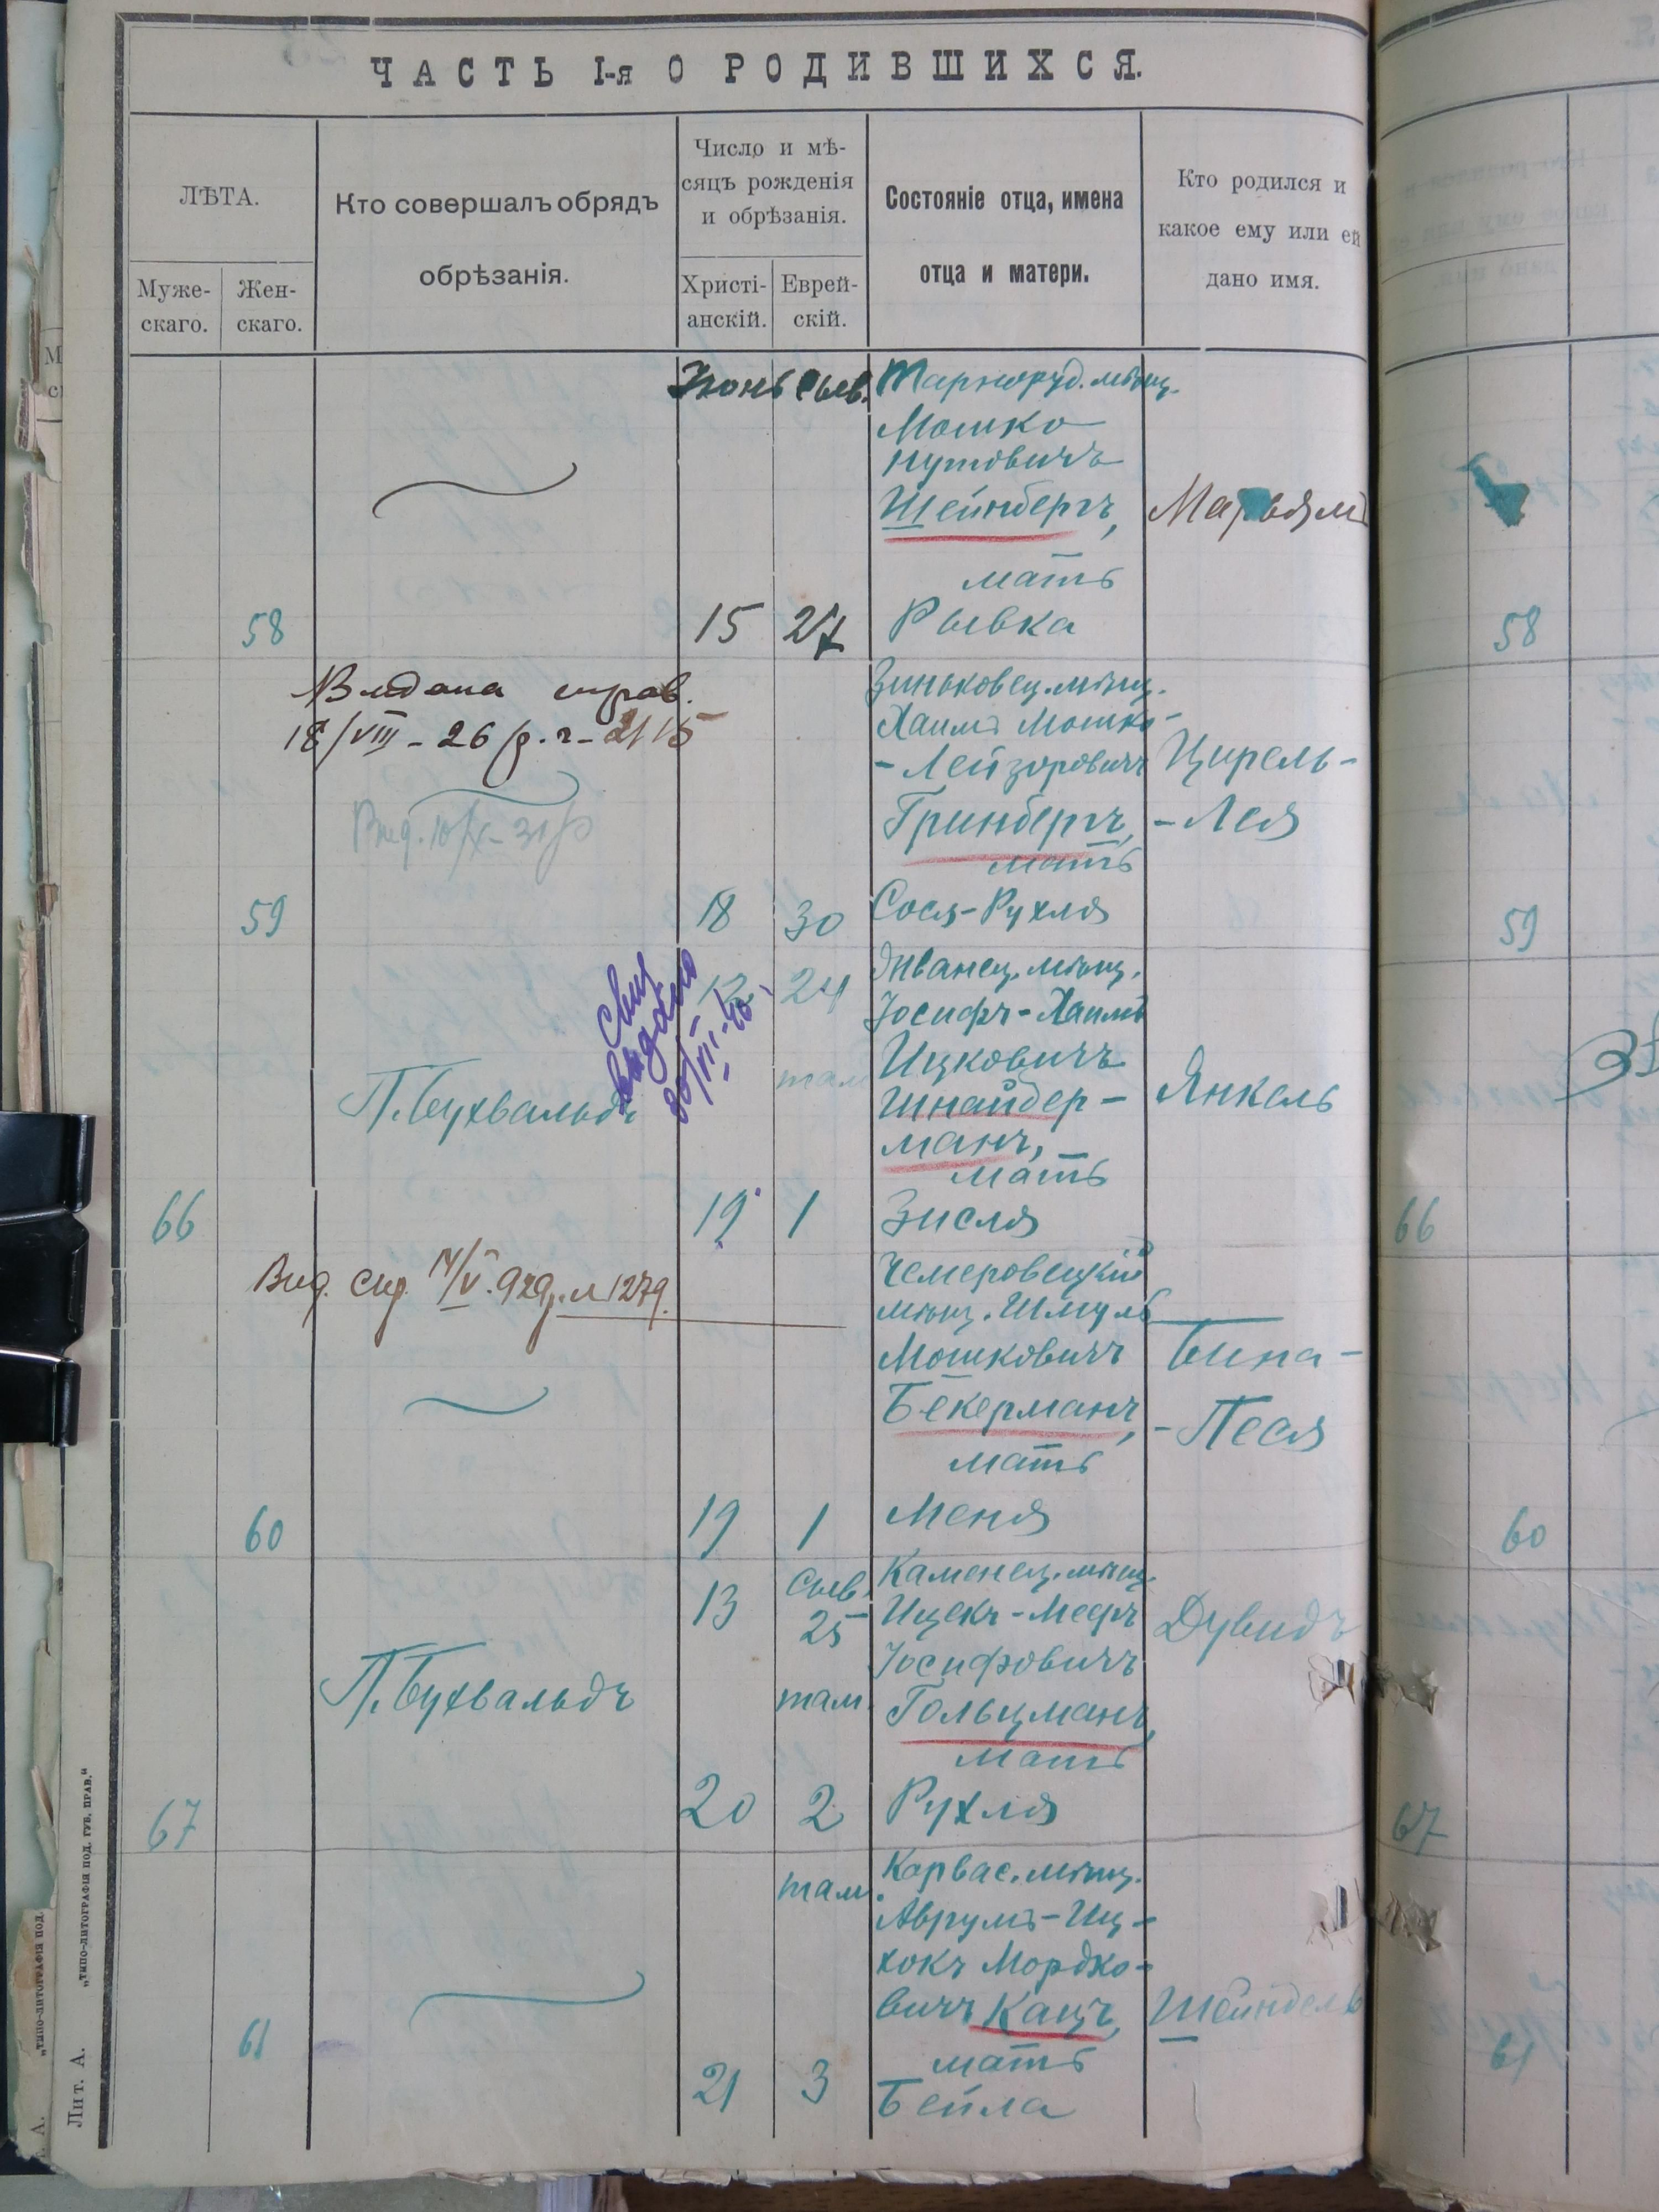 ЧАСТЬ I-я О РОДИВШИХСЯ.
ЛѢТА.
Муже-
скаго.
Жен-
скаго.
Кто совершалъ обрядъ
обрѣзанія.
Число и мѣ-
сяцъ рожденія
и обрѣзанія.
Христі-
анскій.
Еврей-
скій.
Состояніе отца, имена
отца и матери.
Кто родился и
какое ему или ей
дано имя.
Июнь Сыв. Тарноруд. мѣщ.
Мошко
Нутовичъ
Шейнбергъ, Марьям
мать
58 15 27 Рывка 58
Выдана справ. Зиньковец. мѣщ.
18/VIII - 26 р. Хаимъ Мошко-
-Лейзоровичъ Цирель-
Гринбергъ, -Лея
мать
59 18 30 Сося-Рухля 59
12 24 Жванец. мѣщ.
Іосифъ-Хаимъ
Ицковичъ
там
П. Бухвальдъ Шнайдер- Янкель
манъ,
мать
66 19 1 Зисля 66
выдано
Чемеровецкій
Вид. спр. 14/V. 929 р. № 1279. мѣщ. Шмуль
Мошковичъ Бина-
Бекерманъ, -Песя
мать
60 19 1 Меня 60
Сыв. Каменец. мѣщ.
13 25 Ицекъ-Мееръ Дувидъ
Іосифовичъ
П. Бухвальдъ там. Гольцманъ,
мать
67 20 2 Рухля 67
там. Карвас. мѣщ.
Аврумъ-Иц-
хокъ Мордко-
вичъ Кацъ, Шейндель
61 мать 61
21 3 Бейла
Лит. А. „ТИПО-ЛИТОГРАФІЯ ПОД. ГУБ. ПРАВ."
А. „ТИПО-ЛИТОГРАФІЯ ПОД.